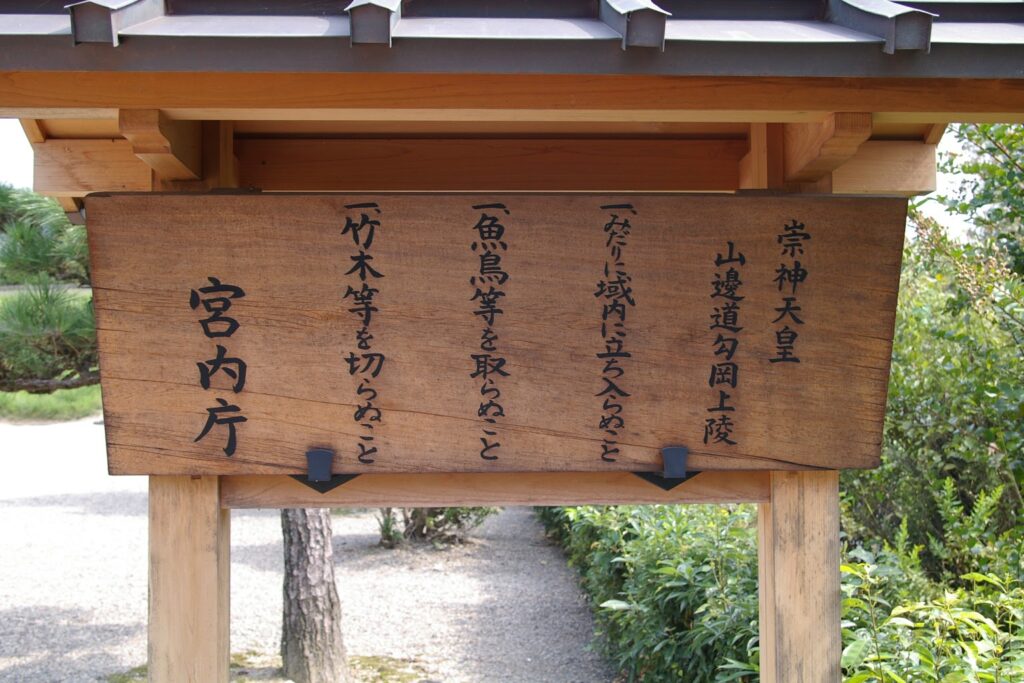 崇神天皇
山邊道勾岡上陵
一、みだりに域内に立ち入らぬこと
一、魚鳥等を取らぬこと
一、竹木等を切らぬこと
宮内庁